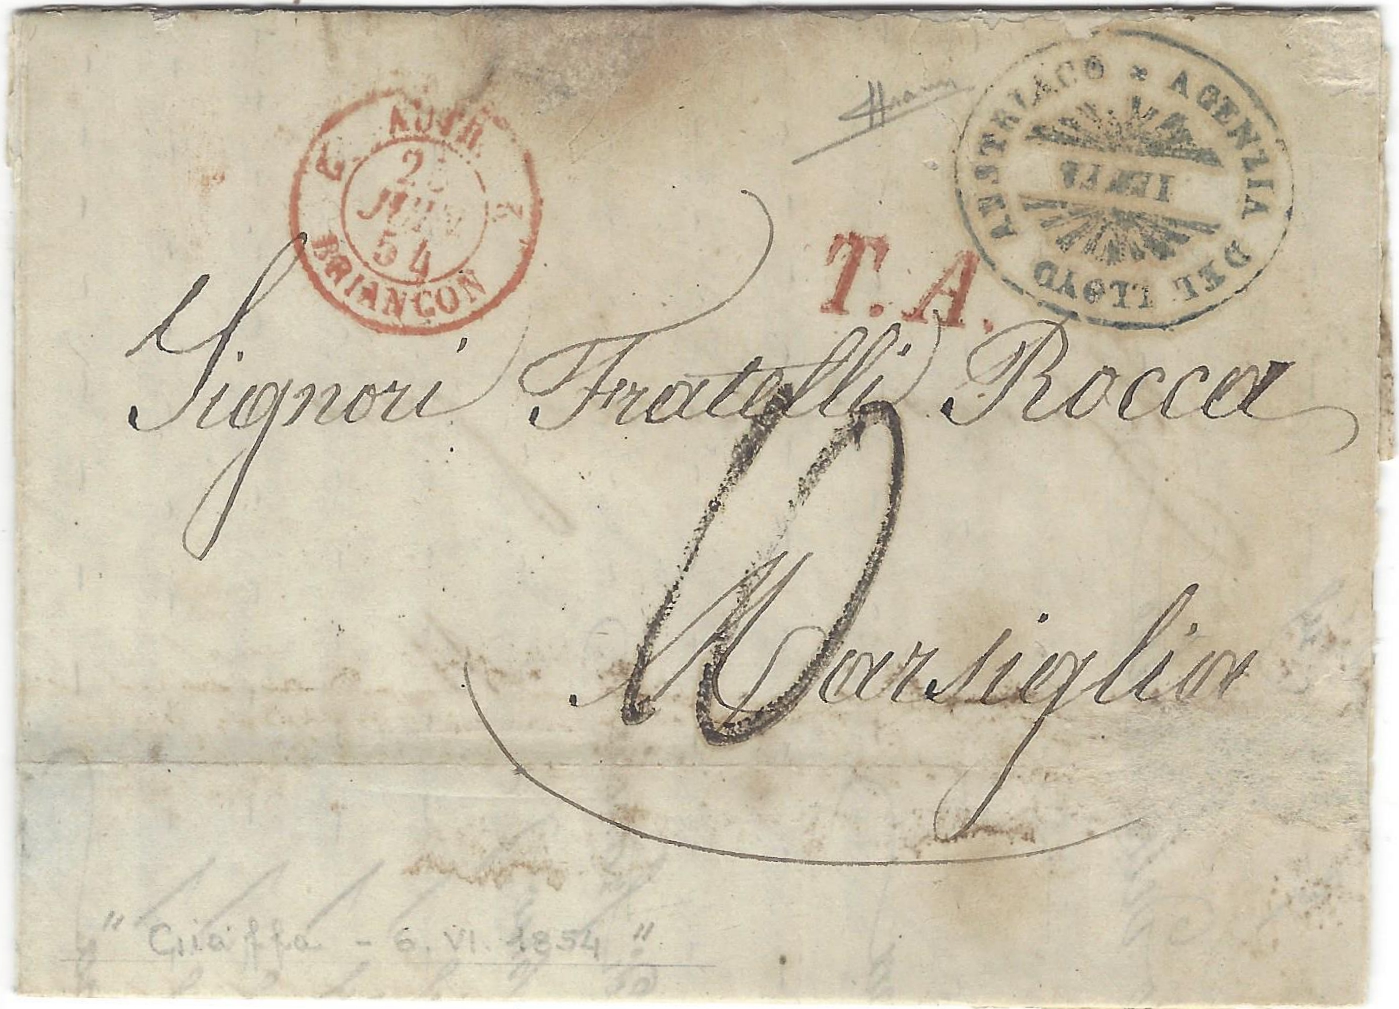 AGENZIA DEL LLOYD AUSTRIACO
AUTR.
2
JUIN
54
BRIANÇON
T. A.
Signori Fratelli Rocca
10
Marsiglia
" Giaffa - 6. VI. 1854 "